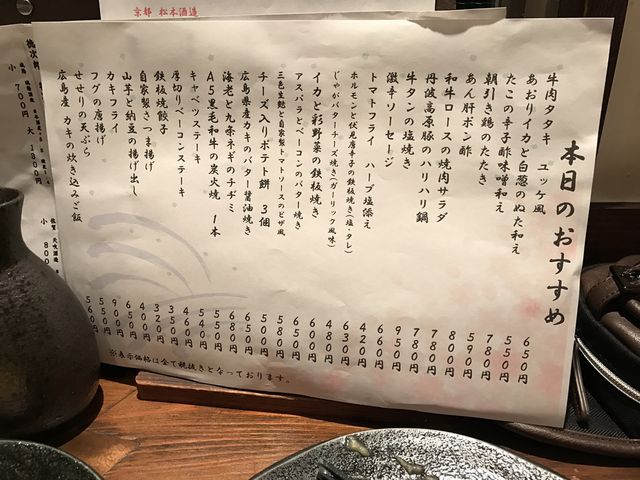 京都 松本酒造
本日のおすすめ
牛肉タタキ ユッケ風 650円
あおりイカと白葱のぬた和え 550円
たこの辛子酢味噌和え 780円
朝引き鶏のたたき 590円
あん肝ポン酢 800円
和牛ロースの焼肉サラダ 780円
丹波高原豚のハリハリ鍋 780円
牛タンの塩焼き 950円
激辛ソーセージ 660円
トマトフライ ハーブ塩添え 420円
ホルモンと伏見唐辛子の鉄板焼き(塩・タレ) 630円
じゃがバターチーズ焼き(ガーリック風味) 480円
アスパラとベーコンのバター焼き 680円
イカと彩野菜の鉄板焼き
三色生麩と自家製トマトソースのピザ風 580円
チーズ入りポテト餅 3個 500円
広島県産カキのバター醤油焼き 650円
海老と九条ネギのチヂミ 680円
A5黒毛和牛の炭火焼 1本 650円
キャベツステーキ 540円
厚切りベーコンステーキ
鉄板焼餃子 350円
自家製さつま揚げ 320円
山芋と納豆の揚げ出し 400円
カキフライ 650円
フグの唐揚げ 900円
せせりの天ぷら 550円
広島産 カキの炊き込みご飯 560円
※表示価格は全て税抜きとなっております。
小 700円
大 1300円
小 800